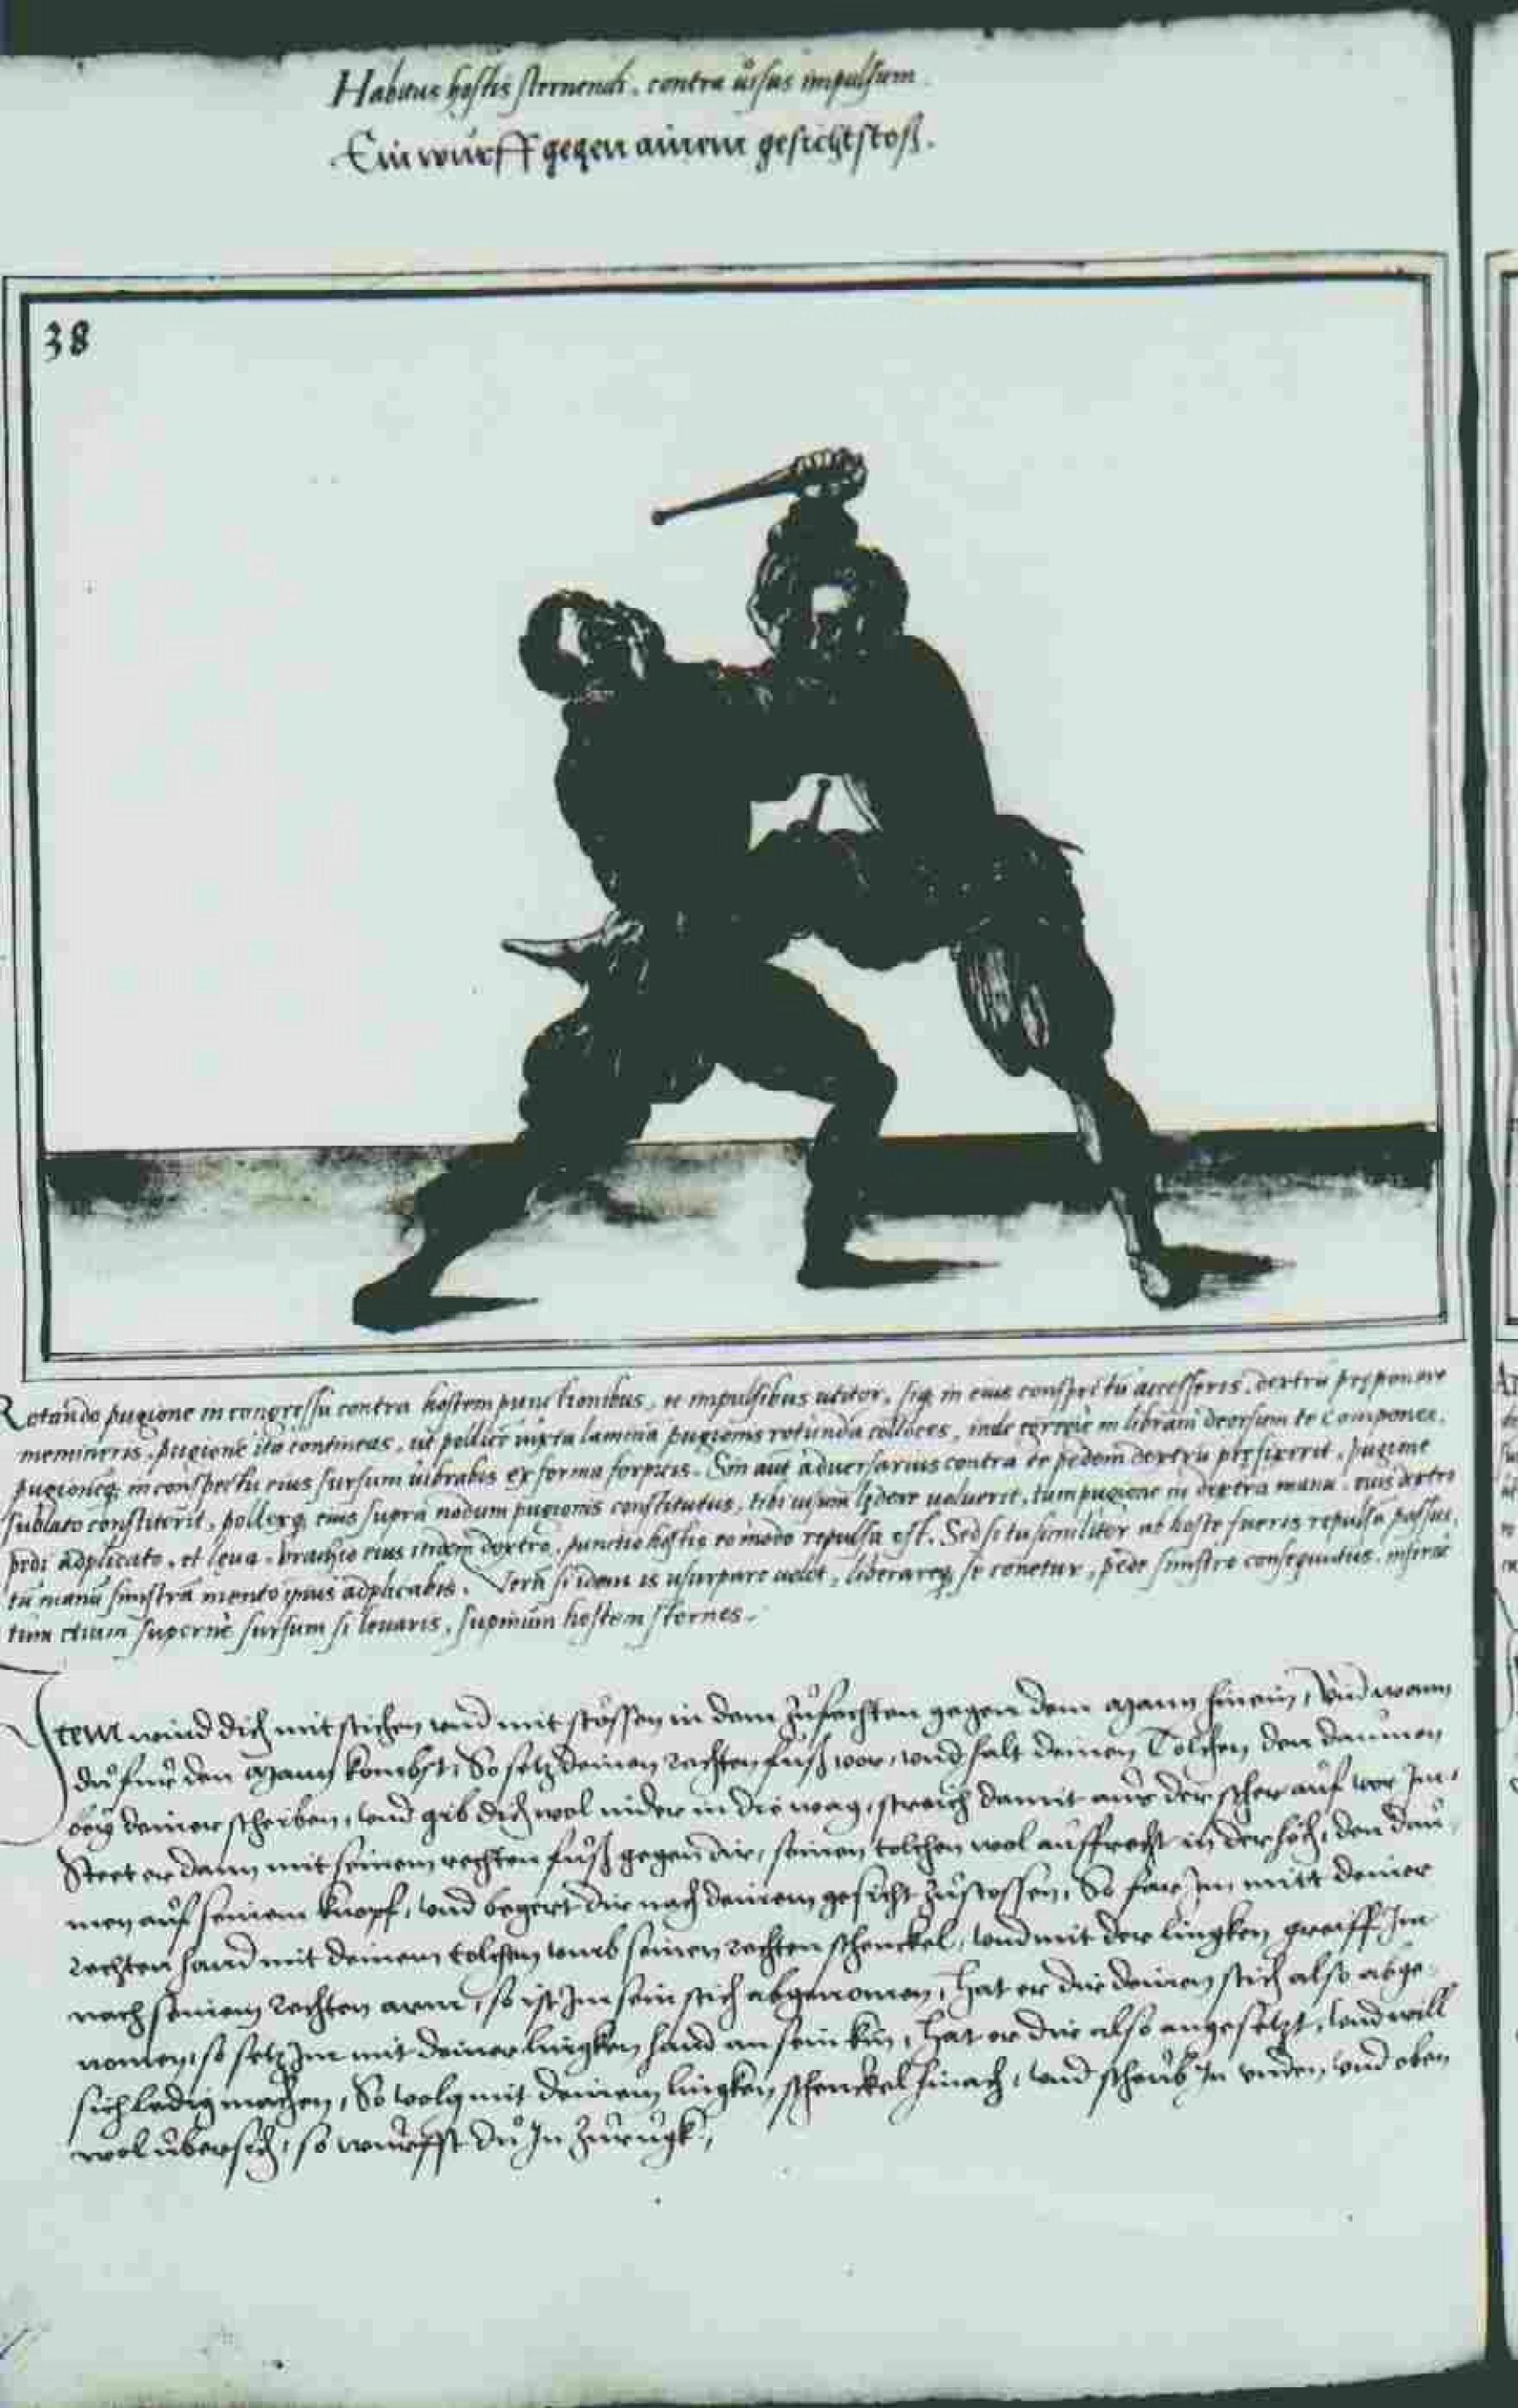 Habitus hostis sternendi, contra uisus impulsum.
Ein wurff gegen ainem gesichtstoß.
38
Rotando pugione in congressu contra hostem punctionibus, ac impulsibus utitor, siq; in eius conspectu accesseris, dextrū pręponere
memineris, pugionē ita contineas, ut pollicē iuxta lamina pugionis rotunda colloces, inde corpore in libram deorsum te componer,
pugioneq; in conspectu eius sursum uibrabis ex forma forpicis. Sin aut aduersarius contra te pedem dextrū pręfixerit, pugione
sublato constiterit, pollexq; eius supra nodum pugionis constitutus, tibi uisum lędere uoluerit, tum pugione in dextra manu eius dextro
pedi adplicato, et leua brachio eius dextro, punctio hostis eo modo repulsa est. Sed si tu similiter ab hoste fueris repulsā passus,
tu manū sinistrā mento ipsius adplicabis. Verū si idem is usurpare uelit, liberareq; se conetur, pede sinistro consequutus, inferne
tum etiam superne sursum si leuaris, supinum hostem sternes.
Item wind dich mit stichen vnd mit stössen in dem zůfechten gegen dem Mann hinein, Vnd wann
dů fur den Mann kombst, So setz deinen rechten fůß vor, vnd halt deinen Tolchen den daumen
bey deiner scheiben, vnd gib dich wol nider in die wag, streich damit aus der scher auf vor Im,
Steet er dann mit seinem rechten fůß gegen dir, seinen tolchen wol auffrecht in der höch, den dau-
men auf seinem knopf, vnd begert dir nach deinem gesicht zůstossen, So far Im mitt deiner
rechten hand mit deinem tolchen vmb seinen rechten schenckel, vnd mit der lingken greiff Im
nach seinem rechten arm, so ist Im sein stich abgenomen, Hat er dir deinen stich also abge-
nomen, so setz Im mit deiner lingken hand an sein kin, Hat er dir also angesetzt, vnd will
sich ledig machen, So volg mit deinem lingken schenckel hinach, vnd scheub In vnden, vnd oben
wol übersich, so würffst dů In zůrugk.